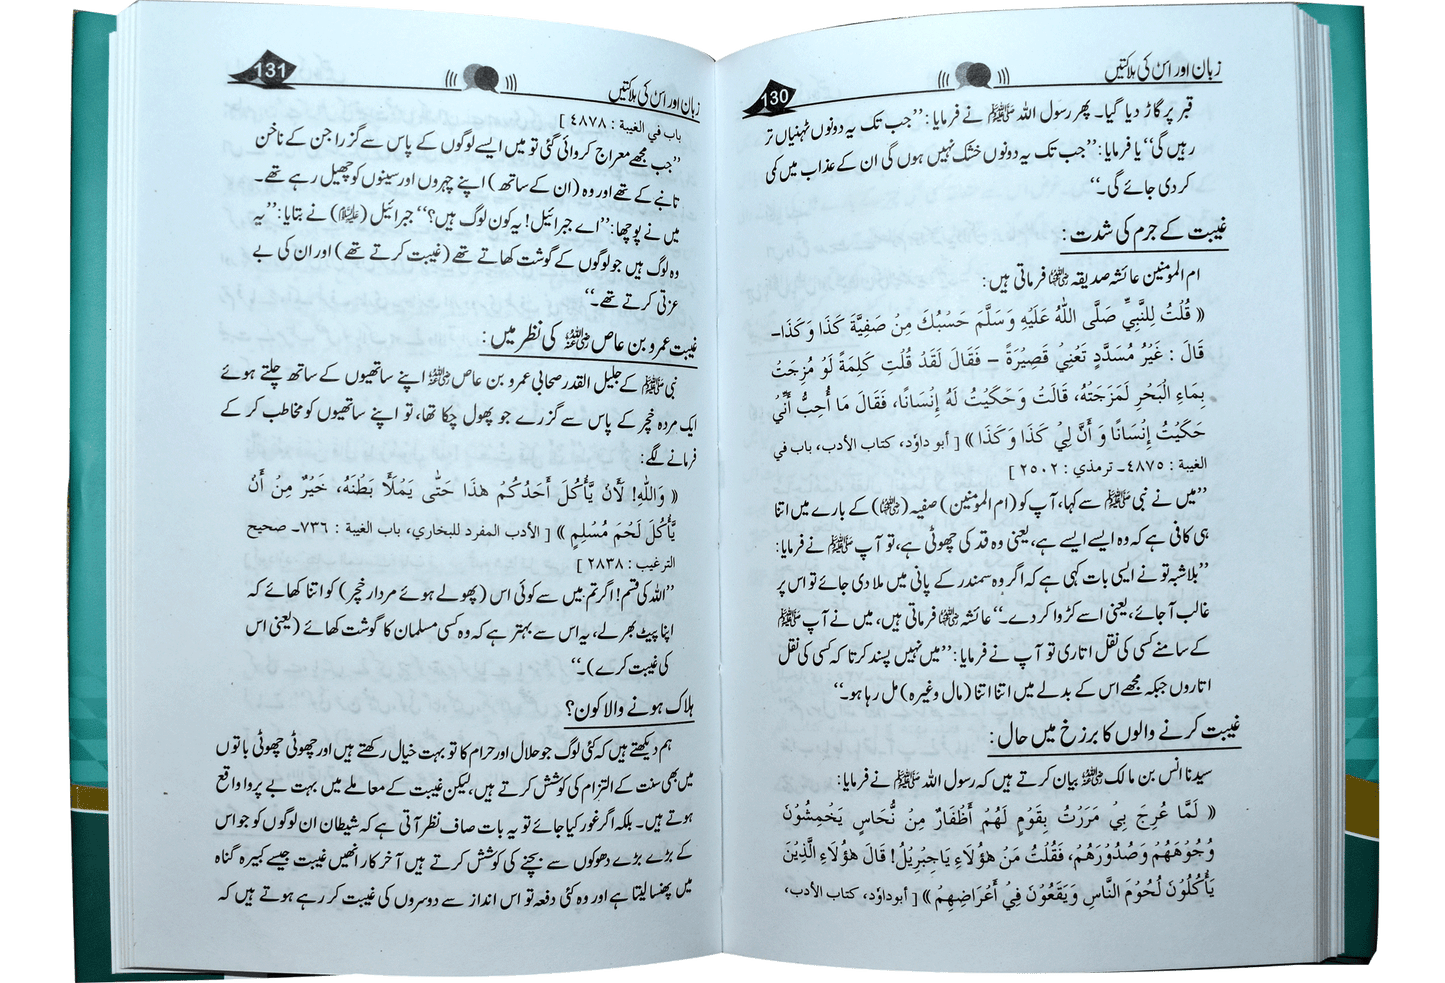 زبان اور اس کی ہلاکتیں
130
قبر پر گاڑ دیا گیا۔ پھر رسول اللہ ﷺ نے فرمایا: ’’جب تک یہ دونوں ٹہنیاں تر
رہیں گی‘‘ یا فرمایا: ’’جب تک یہ دونوں خشک نہیں ہوں گی ان کے عذاب میں کمی
کر دی جائے گی۔‘‘
غیبت کے جرم کی شدت:
ام المومنین عائشہ صدیقہ رضی اللہ عنہا فرماتی ہیں:
« قُلْتُ لِلنَّبِيِّ صَلَّى اللهُ عَلَيْهِ وَسَلَّمَ حَسْبُكَ مِنْ صَفِيَّةَ كَذَا وَكَذَا۔
قَالَ : غَيْرُ مُسَدَّدٍ تَعْنِيْ قَصِيْرَةً – فَقَالَ لَقَدْ قُلْتِ كَلِمَةً لَوْ مُزِجَتْ
بِمَاءِ الْبَحْرِ لَمَزَجَتْهُ، قَالَتْ وَحَكَيْتُ لَهُ إِنْسَانًا، فَقَالَ مَا أُحِبُّ أَنِّيْ
حَكَيْتُ إِنْسَانًا وَ أَنَّ لِيْ كَذَا وَ كَذَا » [ أبو داؤد، كتاب الأدب، باب في
الغيبة : ٤٨٧٥۔ ترمذي : ٢٥٠٢ ]
’’میں نے نبی ﷺ سے کہا، آپ کو (ام المومنین) صفیہ (رضی اللہ عنہا) کے بارے میں اتنا
ہی کافی ہے کہ وہ ایسے ایسے ہے، یعنی وہ قد کی چھوٹی ہے، تو آپ ﷺ نے فرمایا:
’’بلاشبہ تو نے ایسی بات کہی ہے کہ اگر وہ سمندر کے پانی میں ملا دی جائے تو اس پر
غالب آ جائے، یعنی اسے کڑوا کر دے۔‘‘ عائشہ رضی اللہ عنہا فرماتی ہیں، میں نے آپ ﷺ
کے سامنے کسی کی نقل اتاری تو آپ نے فرمایا: ’’میں نہیں پسند کرتا کہ کسی کی نقل
اتاروں جبکہ مجھے اس کے بدلے میں اتنا اتنا (مال وغیرہ) مل رہا ہو۔‘‘
غیبت کرنے والوں کا برزخ میں حال:
سیدنا انس بن مالک رضی اللہ عنہ بیان کرتے ہیں کہ رسول اللہ ﷺ نے فرمایا:
« لَمَّا عُرِجَ بِيْ مَرَرْتُ بِقَوْمٍ لَهُمْ أَظْفَارٌ مِنْ نُّحَاسٍ يَخْمِشُوْنَ
وُجُوْهَهُمْ وَصُدُوْرَهُمْ، فَقُلْتُ مَنْ هٰؤُلَاءِ يَاجِبْرِيْلُ! قَالَ هٰؤُلَاءِ الَّذِيْنَ
يَأْكُلُوْنَ لُحُوْمَ النَّاسِ وَيَقَعُوْنَ فِيْ أَعْرَاضِهِمْ » [ أبوداؤد، كتاب الأدب،
زبان اور اس کی ہلاکتیں
131
باب في الغيبة : ٤٨٧٨ ]
’’جب مجھے معراج کروائی گئی تو میں ایسے لوگوں کے پاس سے گزرا جن کے ناخن
تانبے کے تھے اور وہ (ان کے ساتھ) اپنے چہروں اور سینوں کو چھیل رہے تھے۔
میں نے پوچھا: ’’اے جبرائیل! یہ کون لوگ ہیں؟‘‘ جبرائیل (علیہ السلام) نے بتایا: ’’یہ
وہ لوگ ہیں جو لوگوں کے گوشت کھاتے تھے (غیبت کرتے تھے) اور ان کی بے
عزتی کرتے تھے۔‘‘
غیبت عمرو بن عاص رضی اللہ عنہ کی نظر میں:
نبی ﷺ کے جلیل القدر صحابی عمرو بن عاص رضی اللہ عنہ اپنے ساتھیوں کے ساتھ چلتے ہوئے
ایک مردہ خچر کے پاس سے گزرے جو پھول چکا تھا، تو اپنے ساتھیوں کو مخاطب کر کے
فرمانے لگے:
« وَاللهِ! لَأَنْ يَّأْكُلَ أَحَدُكُمْ هٰذَا حَتّٰى يَمْلَأَ بَطْنَهُ، خَيْرٌ مِنْ أَنْ
يَّأْكُلَ لَحْمَ مُسْلِمٍ » [ الأدب المفرد للبخاري، باب الغيبة : ٧٣٦۔ صحيح
الترغيب : ٢٨٣٨ ]
’’اللہ کی قسم! اگر تم میں سے کوئی اس (پھولے ہوئے مردار خچر) کو اتنا کھائے کہ
اپنا پیٹ بھر لے، یہ اس سے بہتر ہے کہ وہ کسی مسلمان کا گوشت کھائے (یعنی اس
کی غیبت کرے)۔‘‘
ہلاک ہونے والا کون؟
ہم دیکھتے ہیں کہ کئی لوگ جو حلال اور حرام کا تو بہت خیال رکھتے ہیں اور چھوٹی چھوٹی باتوں
میں بھی سنت کے التزام کی کوشش کرتے ہیں، لیکن غیبت کے معاملے میں بہت بے پروا واقع
ہوتے ہیں۔ بلکہ اگر غور کیا جائے تو یہ بات صاف نظر آتی ہے کہ شیطان ان لوگوں کو جو اس
کے بڑے بڑے دھوکوں سے بچنے کی کوشش کرتے ہیں آخر کار انھیں غیبت جیسے کبیرہ گناہ
میں پھنسا لیتا ہے اور وہ کئی دفعہ تو اس انداز سے دوسروں کی غیبت کر رہے ہوتے ہیں کہ